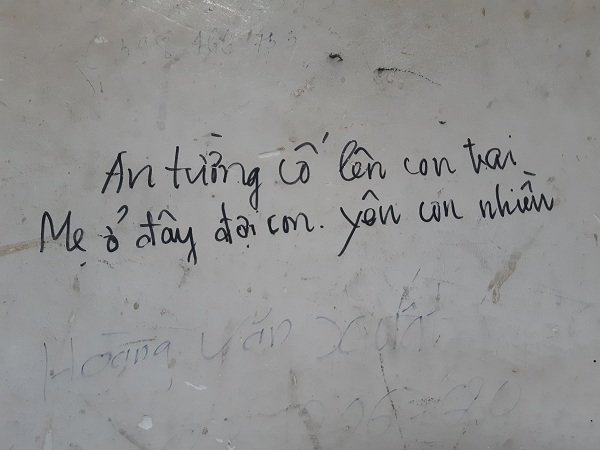 An tưởng cố lên con trai
Mẹ ở đây đợi con. yêu con nhiều
Hoàng Văn